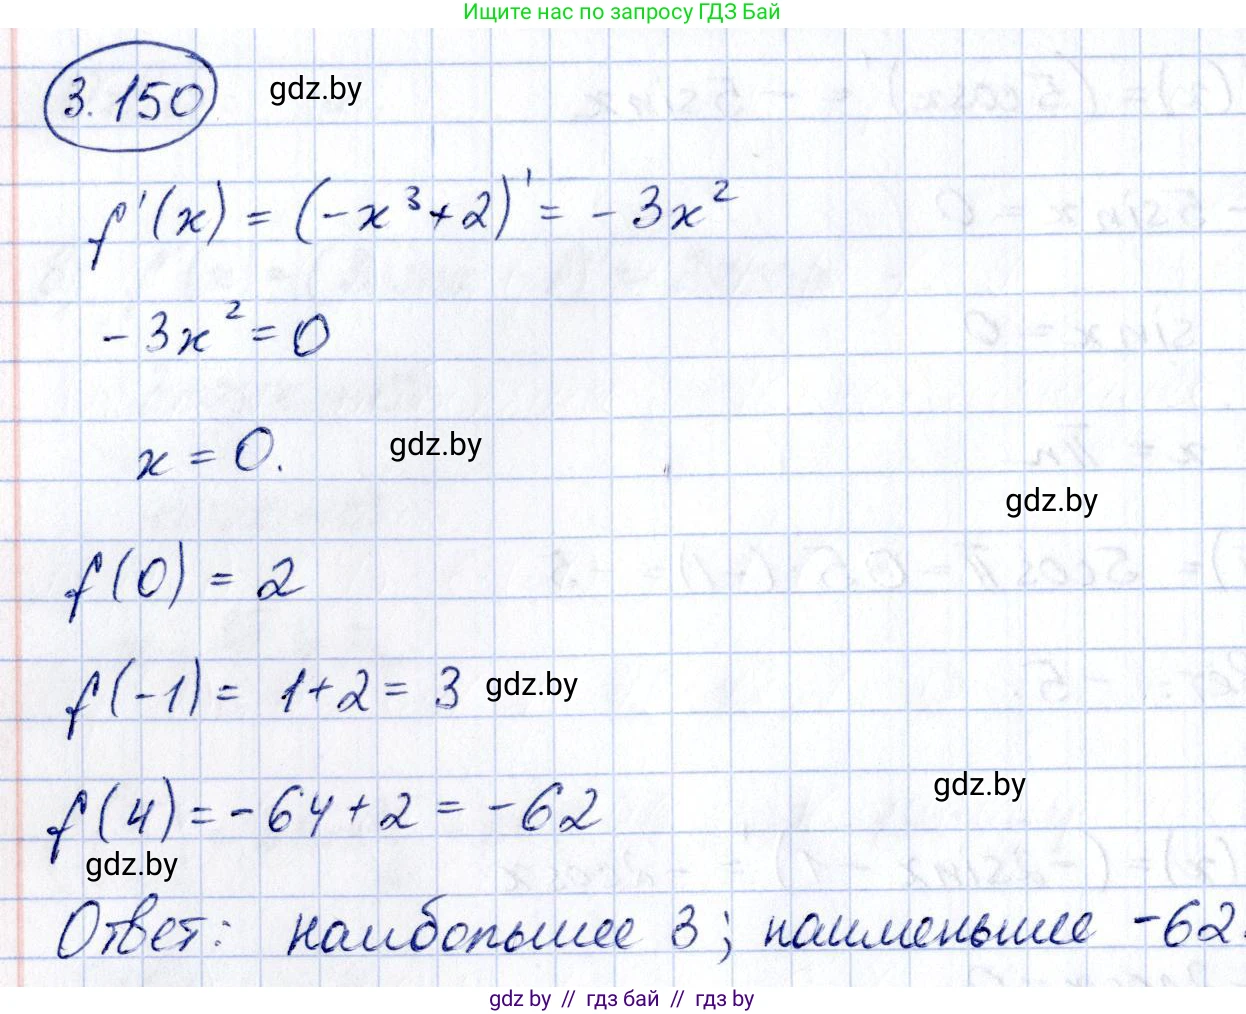 Ищите нас по запросу ГДЗ Бай
3.150 gdz.by
f'(x) = (-x³+2)' = -3x²
-3x² = 0
x = 0. gdz.by
gdz.by
f(0) = 2
f(-1) = 1+2 = 3 gdz.by
gdz.by
f(4) = -64+2 = -62
gdz.by
Ответ: наибольшее 3; наименьшее -62.
gdz.by // гдз бай // гдз by